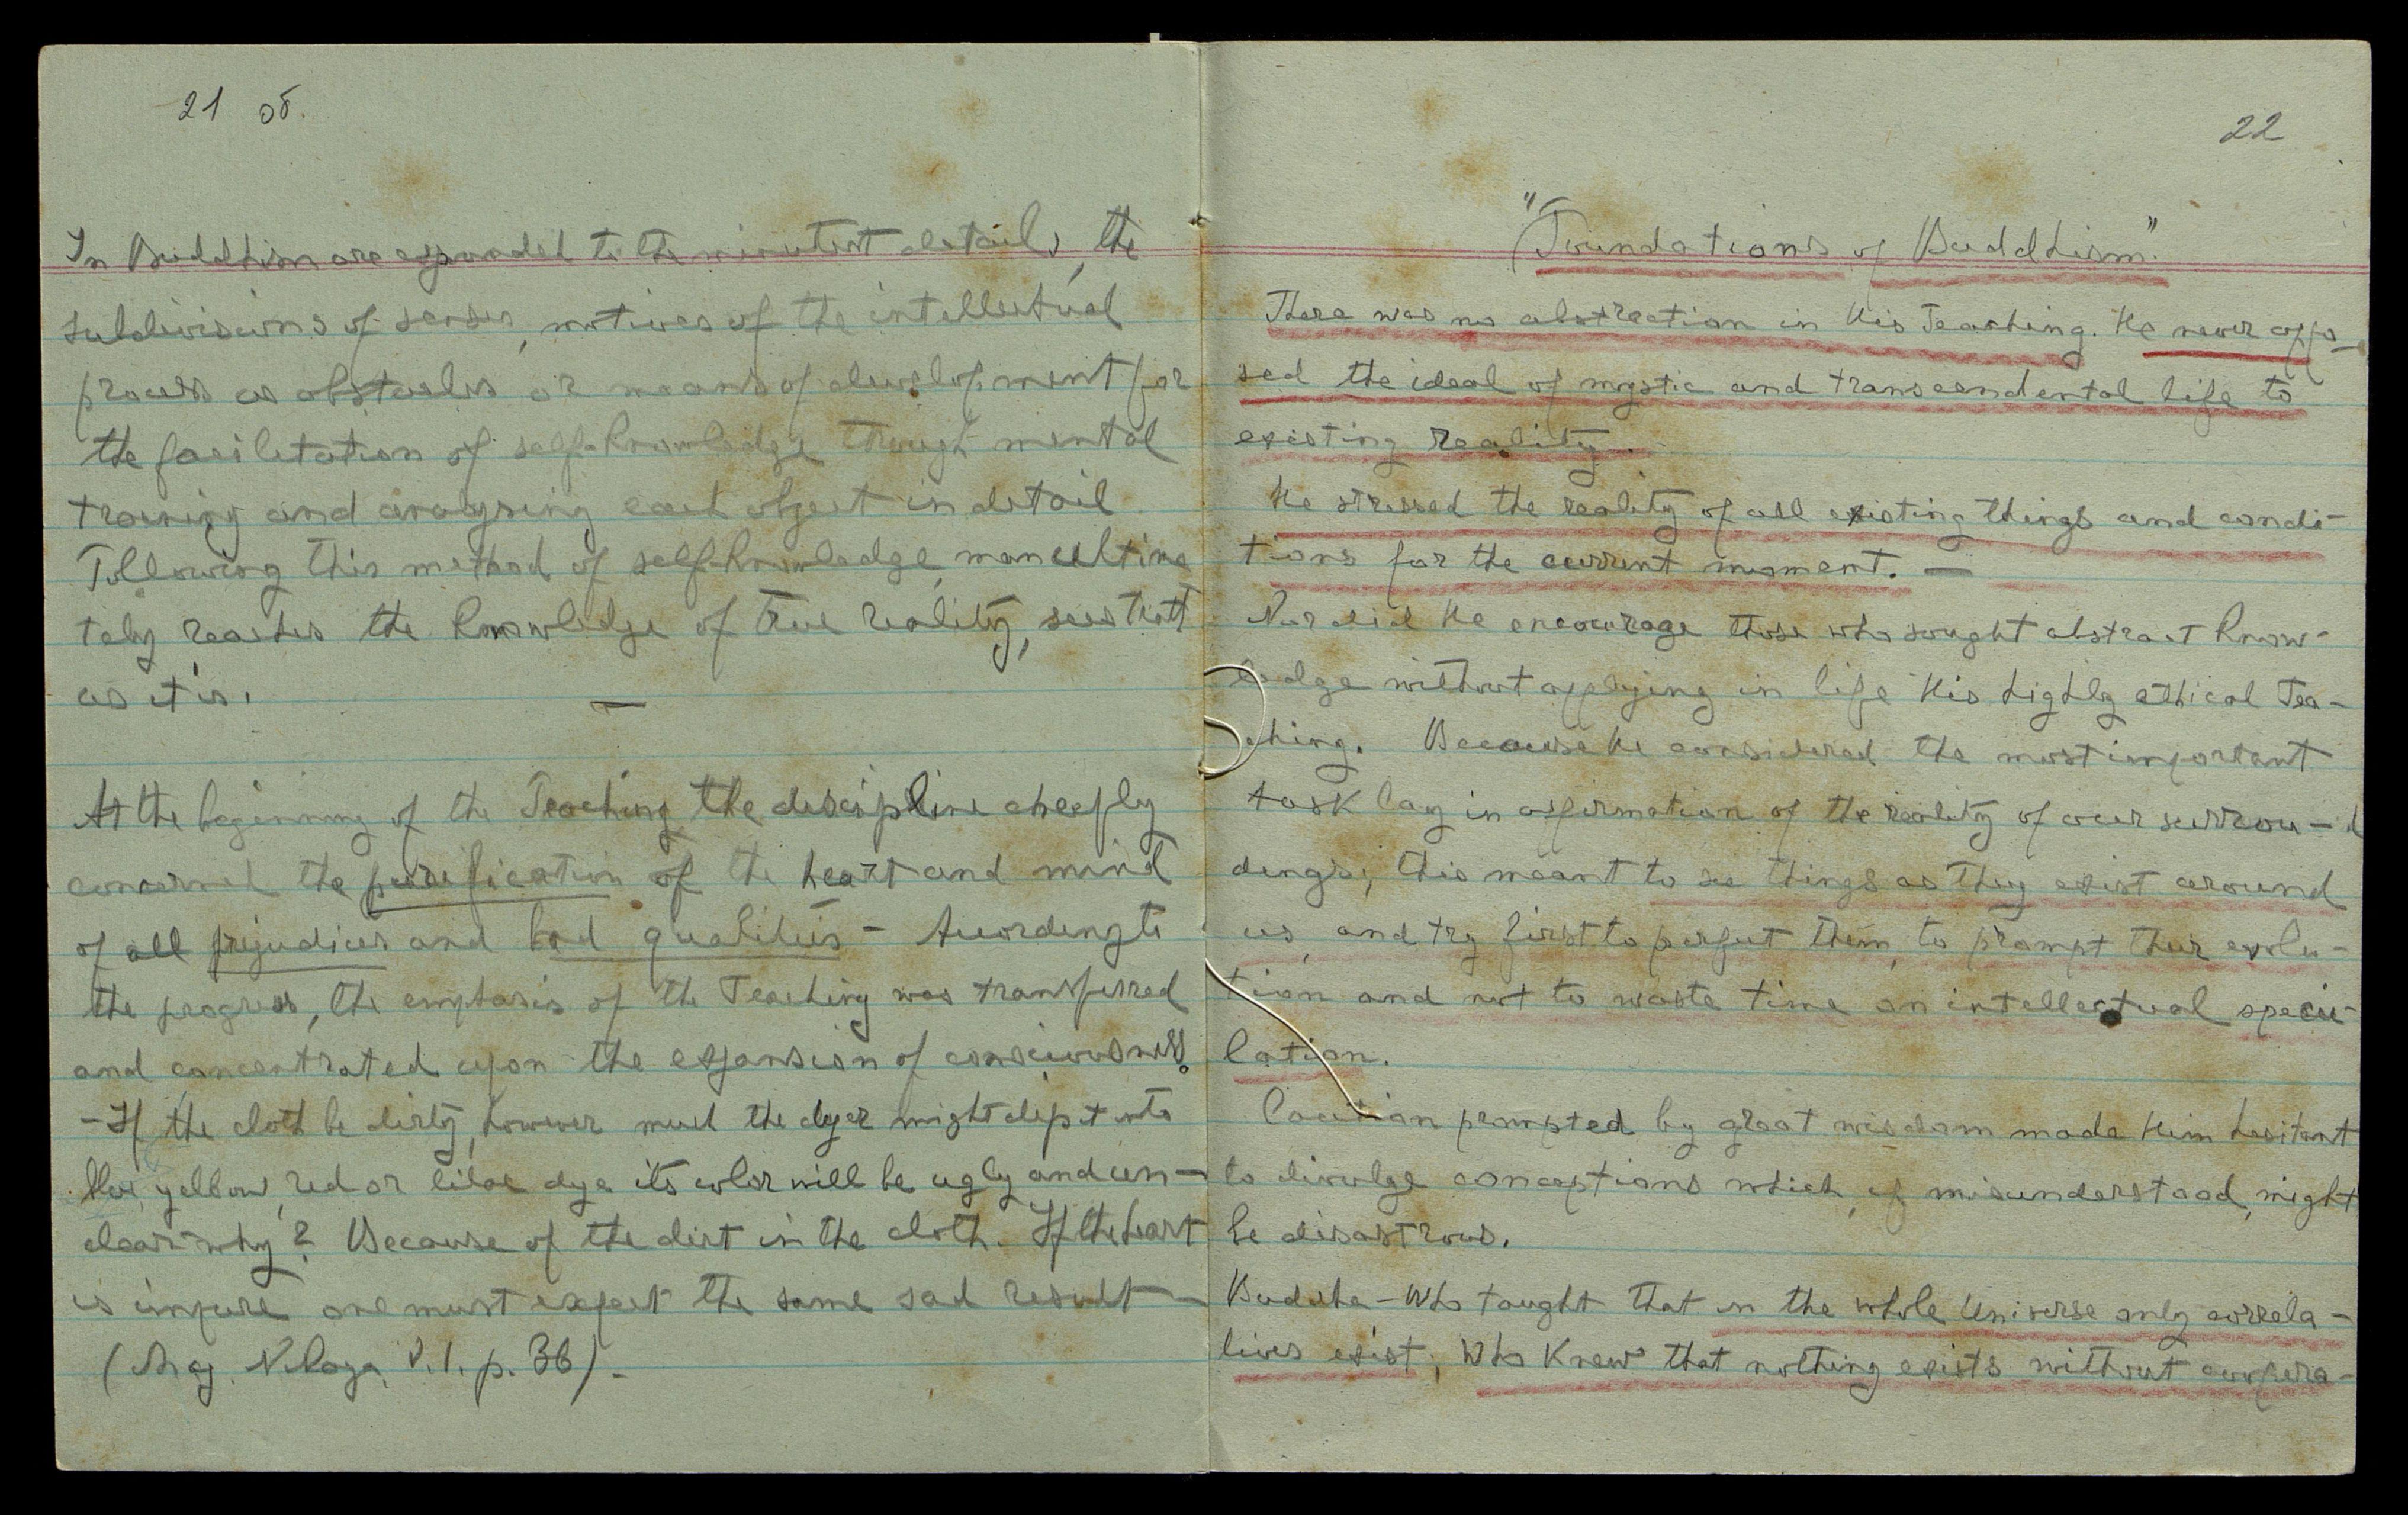 21 об.
In Buddhism are expounded to the minutest details, the
subdivisions of senses, motives of the intellectual
process as obstacles or means of development for
the facilitation of self-knowledge through mental
training and analysing each object in detail.
Following this method of self-knowledge, man ultima
tely reaches the knowledge of true reality, sees truth
as it is.
At the beginning of the Teaching the discipline cheefly
concerned the purification of the heart and mind
of all prejudices and bad qualities – According to
the progress, the emphasis of the Teaching was transferred
and concentrated upon the expansion of consciousness.
– If the cloth be dirty, however much the dyer might dip it into
blue, yellow, red or lilac dye its color will be ugly and un–
clear – why? Because of the dirt in the cloth. If the heart
is impure one must expect the same sad result –
(Maj. Nikaya, V. 1. p. 36) –
22
"Foundations of Buddhism"
There was no abstraction in His Teaching. He never oppo–
sed the ideal of mystic and transcendental life to
existing reality.
He stressed the reality of all existing things and condi–
tions for the current moment. —
Nor did He encourage those who sought abstract know–
ledge without applying in life His highly ethical Tea–
ching. Because He considered the most important
task lay in affirmation of the reality of our surrou–
dings; this meant to see things as they exist around
us, and try first to perfect them, to prompt their evolu–
tion and not to waste time on intellectual specu–
lation.
Caution prompted by great wisdom made Him hesitant
to divulge conceptions which, if misunderstood, might
be disastrous.
Buddha – Who taught that in the whole Universe only correla–
tives exist; Who Knew that nothing exists without coopera–